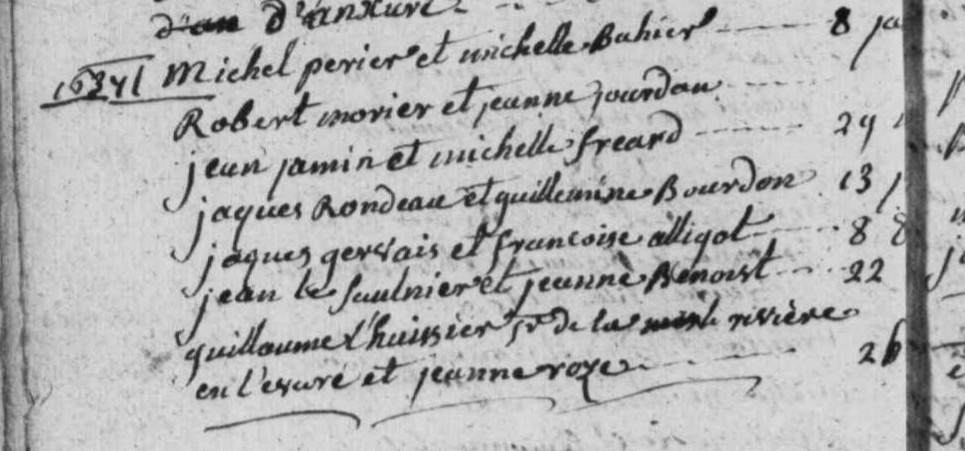 d'an d'anxure
1634 Michel perier et michelle Bahier 8 ja
Robert morier et jeanne jourdan
jean jamin et michelle freard 29
jaques Rondeau et guillemine Bourdon 13
jaques gervais et francoise alligot 8 8
jean le saulnier et jeanne Benoist 22
guillaume l'huissier sr de la rivière
en l'esure et jeanne roze 26